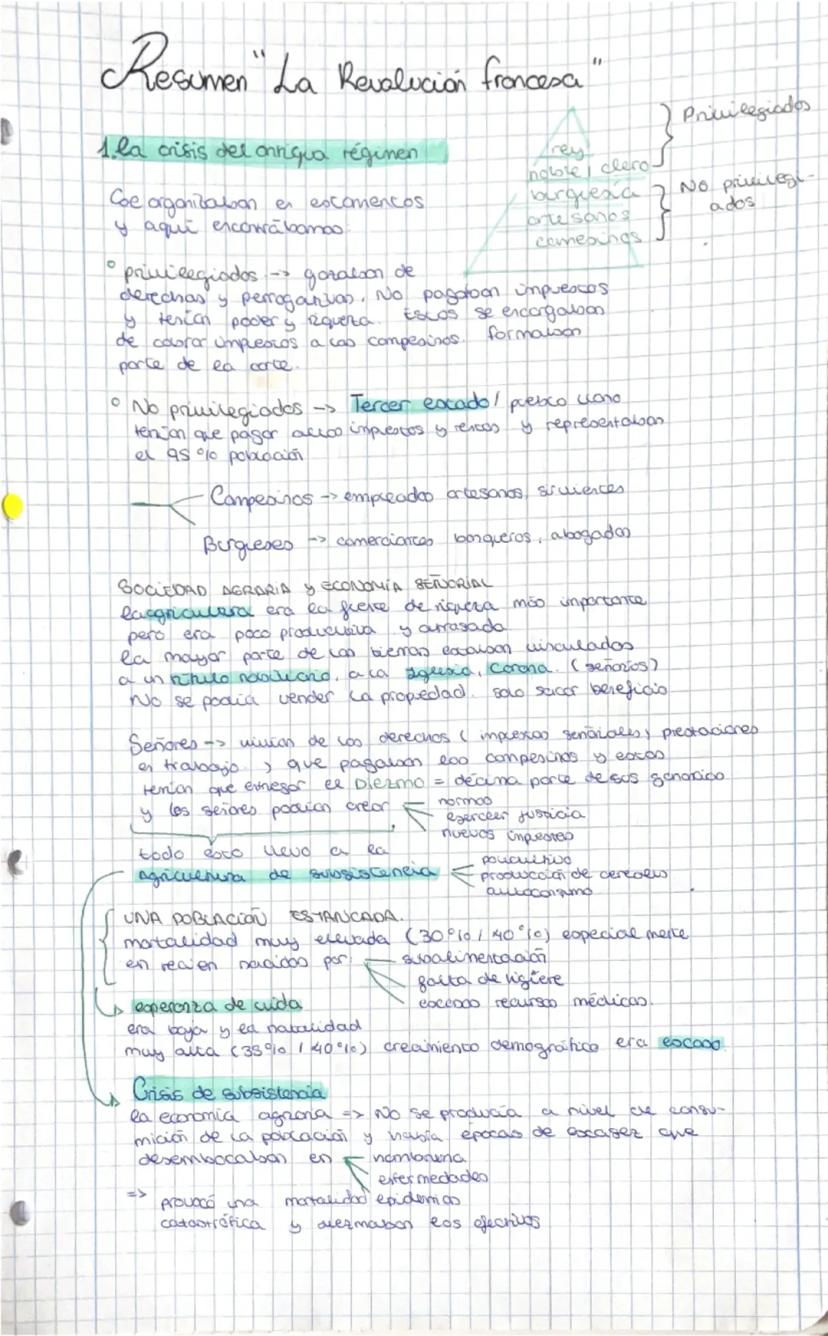 Resumen "La Revolución francesa"
1. la crisis del antiguo régimen
rey
noble / clero
burguesía
artesanos
campesinos
Privilegiados
No privilegi-
ados
Se organizaban en estamentos
y aquí encontrábamos
° privilegiados -> gozaban de
derechos y perrogativas. No pagaban impuestos
y tenían poder y riqueza. Estos se encargaban
de cobrar impuestos a los campesinos. formaban
parte de la corte.
° No privilegiados -> Tercer estado / pueblo llano
tenían que pagar impuestos y rentas y representaban
el 95 % población
Campesinos -> empleados artesanos, sirvientes
Burgueses -> comerciantes banqueros, abogados
SOCIEDAD AGRARIA y ECONOMÍA SEÑORIAL
la agricultura era la fuente de riqueza más importante
pero era poco productiva y atrasada
la mayor parte de los bienes estaban vinculados
a un título nobiliario, a la Iglesia, Corona. (señoríos)
No se podía vender la propiedad. solo sacar beneficio
Señores -> vivían de los derechos ( impuestos señoriales, prestaciones
en trabajo.. ) que pagaban los campesinos y estos
tenían que entregar el Diezmo = décima parte de sus ganancias
y los señores podían crear
normas
ejercer justicia
nuevos impuestos
todo esto llevó a la
agricultura de subsistencia
policultivo
producción de cereales
autoconsumo
UNA POBLACIÓN ESTANCADA.
mortalidad muy elevada (30% / 40%) especialmente
en recien nacidos por:
subalimentación
falta de higiene
escasos recursos médicos.
esperanza de vida
era baja y la natalidad
muy alta (35% / 40%) crecimiento demográfico era escaso.
Crisis de subsistencia
la economía agraria => No se producía a nivel de consu-
mición de la población y había épocas de escasez que
desembocaban en
hambruna
enfermedades
=> provocó una mortalidad epidemias
catastrófica y diezmaban los efectivos